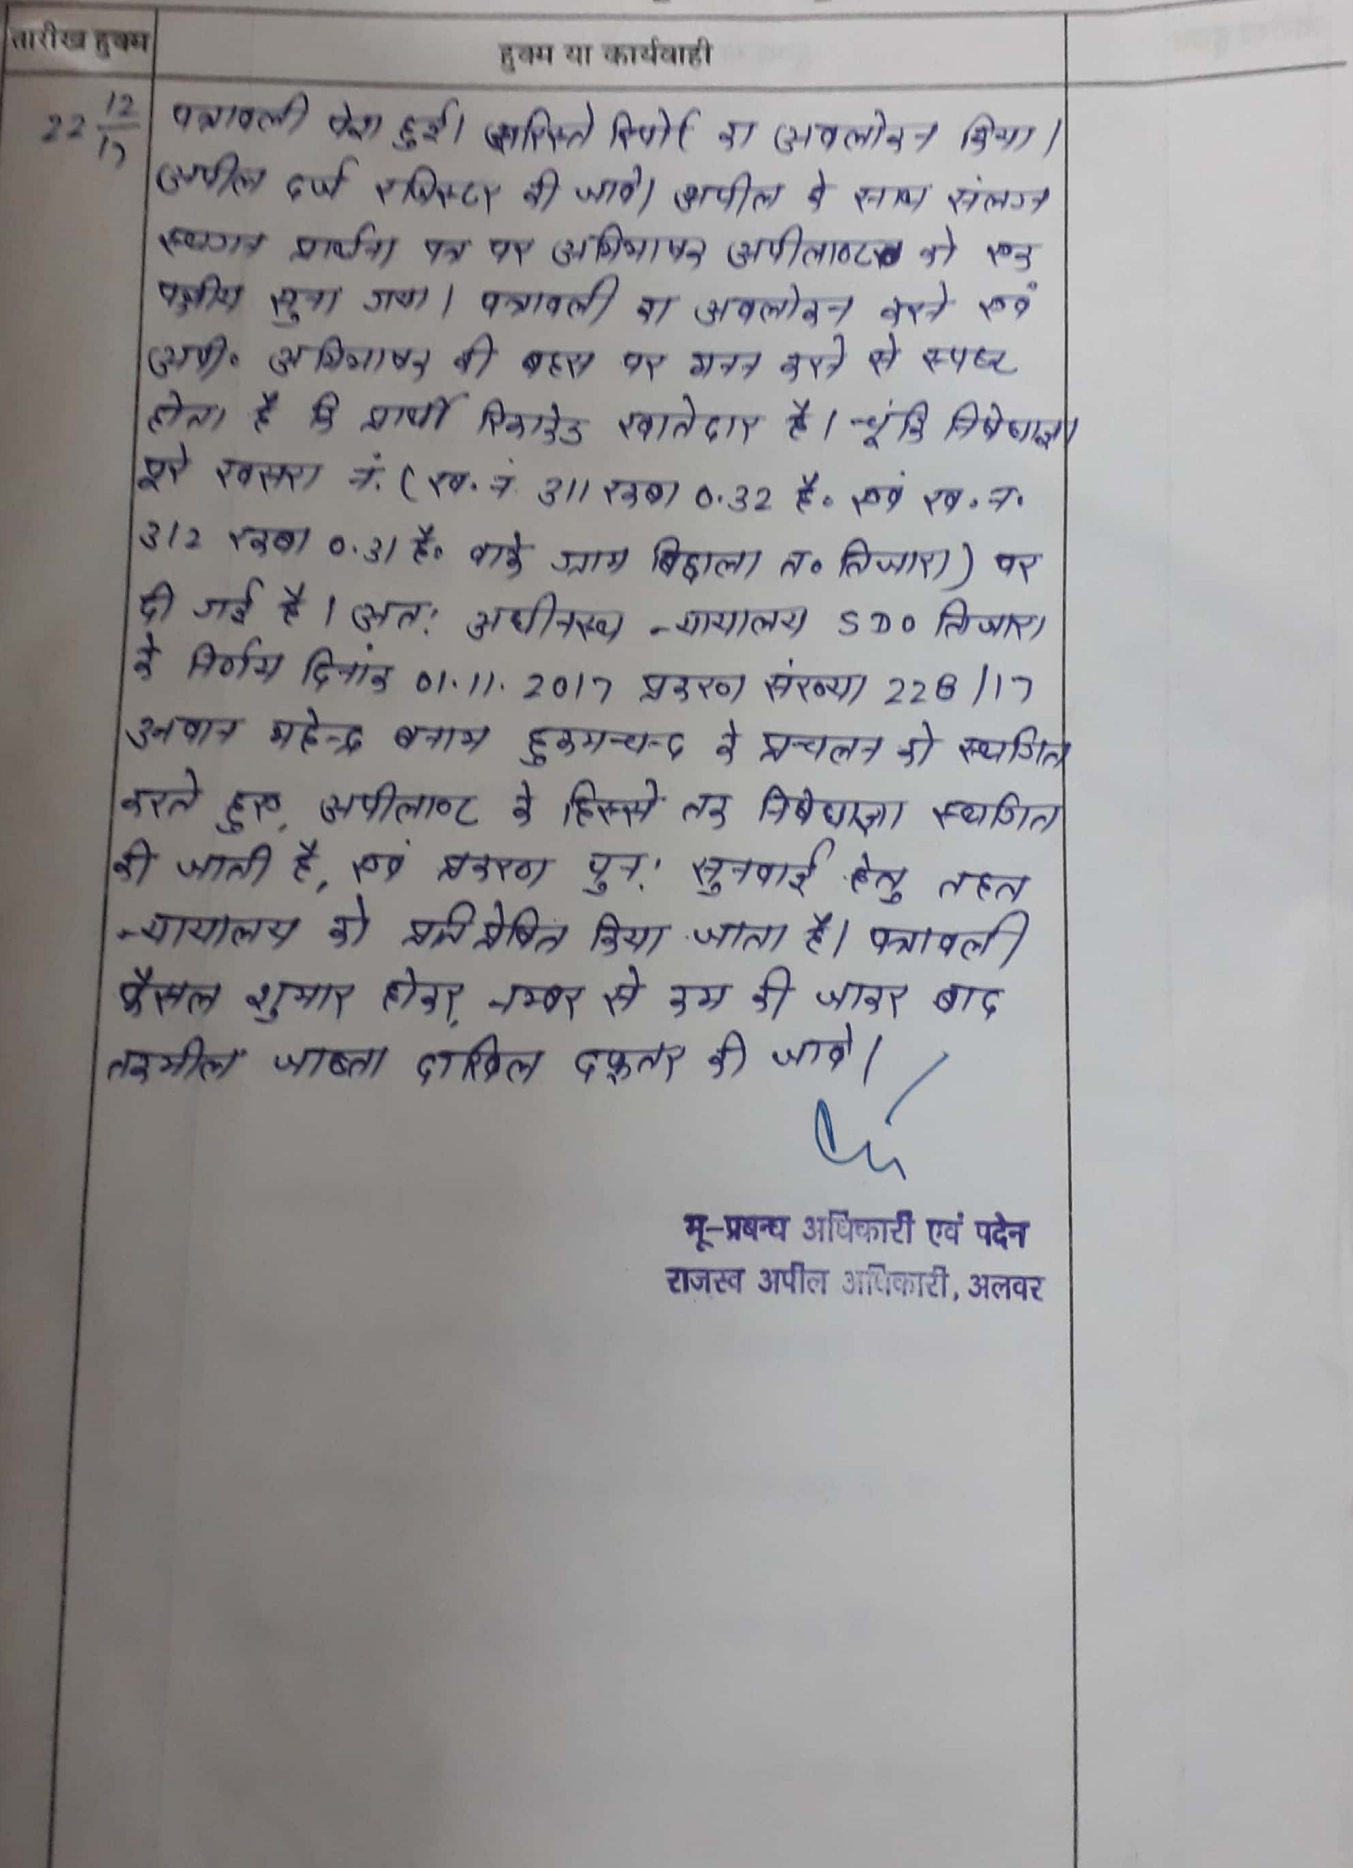 तारीख हुक्म
हुक्म या कार्यवाही
22 12/17
पत्रावली पेश हुई। सरिस्ते रिपोर्ट का अवलोकन किया।
अपील दर्ज रजिस्टर की जावे। अपील के साथ संलग्न
स्थगन प्रार्थना पत्र पर अभिभाषक अपीलाण्ट को एक
पक्षीय सुना गया। पत्रावली का अवलोकन करने एवं
अपी. अभिभाषक की बहस पर मनन करने से स्पष्ट
होता है कि प्रार्थी रिकार्डेड खातेदार है। चूंकि निषेधाज्ञा
पूरे खसरा नं. (ख. नं. 311 रकबा 0.32 है. एवं ख. न.
312 रकबा 0.31 है. वाके ग्राम त. तिजारा) पर
दी गई है। अतः अधीनस्थ न्यायालय SDO तिजारा
के निर्णय दिनांक 01.11.2017 प्रकरण संख्या 228/17
उनवान महेन्द्र बनाम हुकमचन्द के प्रचलन को स्थगित
करते हुए, अपीलाण्ट के हिस्से तक निषेधाज्ञा स्थगित
की जाती है, एवं प्रकरण पुनः सुनवाई हेतु तहत
न्यायालय को प्रतिप्रेषित किया जाता है। पत्रावली
फैसल शुमार होकर, नम्बर से कम की जाकर बाद
तकमील जाब्ता दाखिल दफ्तर की जावे।
भू-प्रबन्ध अधिकारी एवं पदेन
राजस्व अपील अधिकारी, अलवर